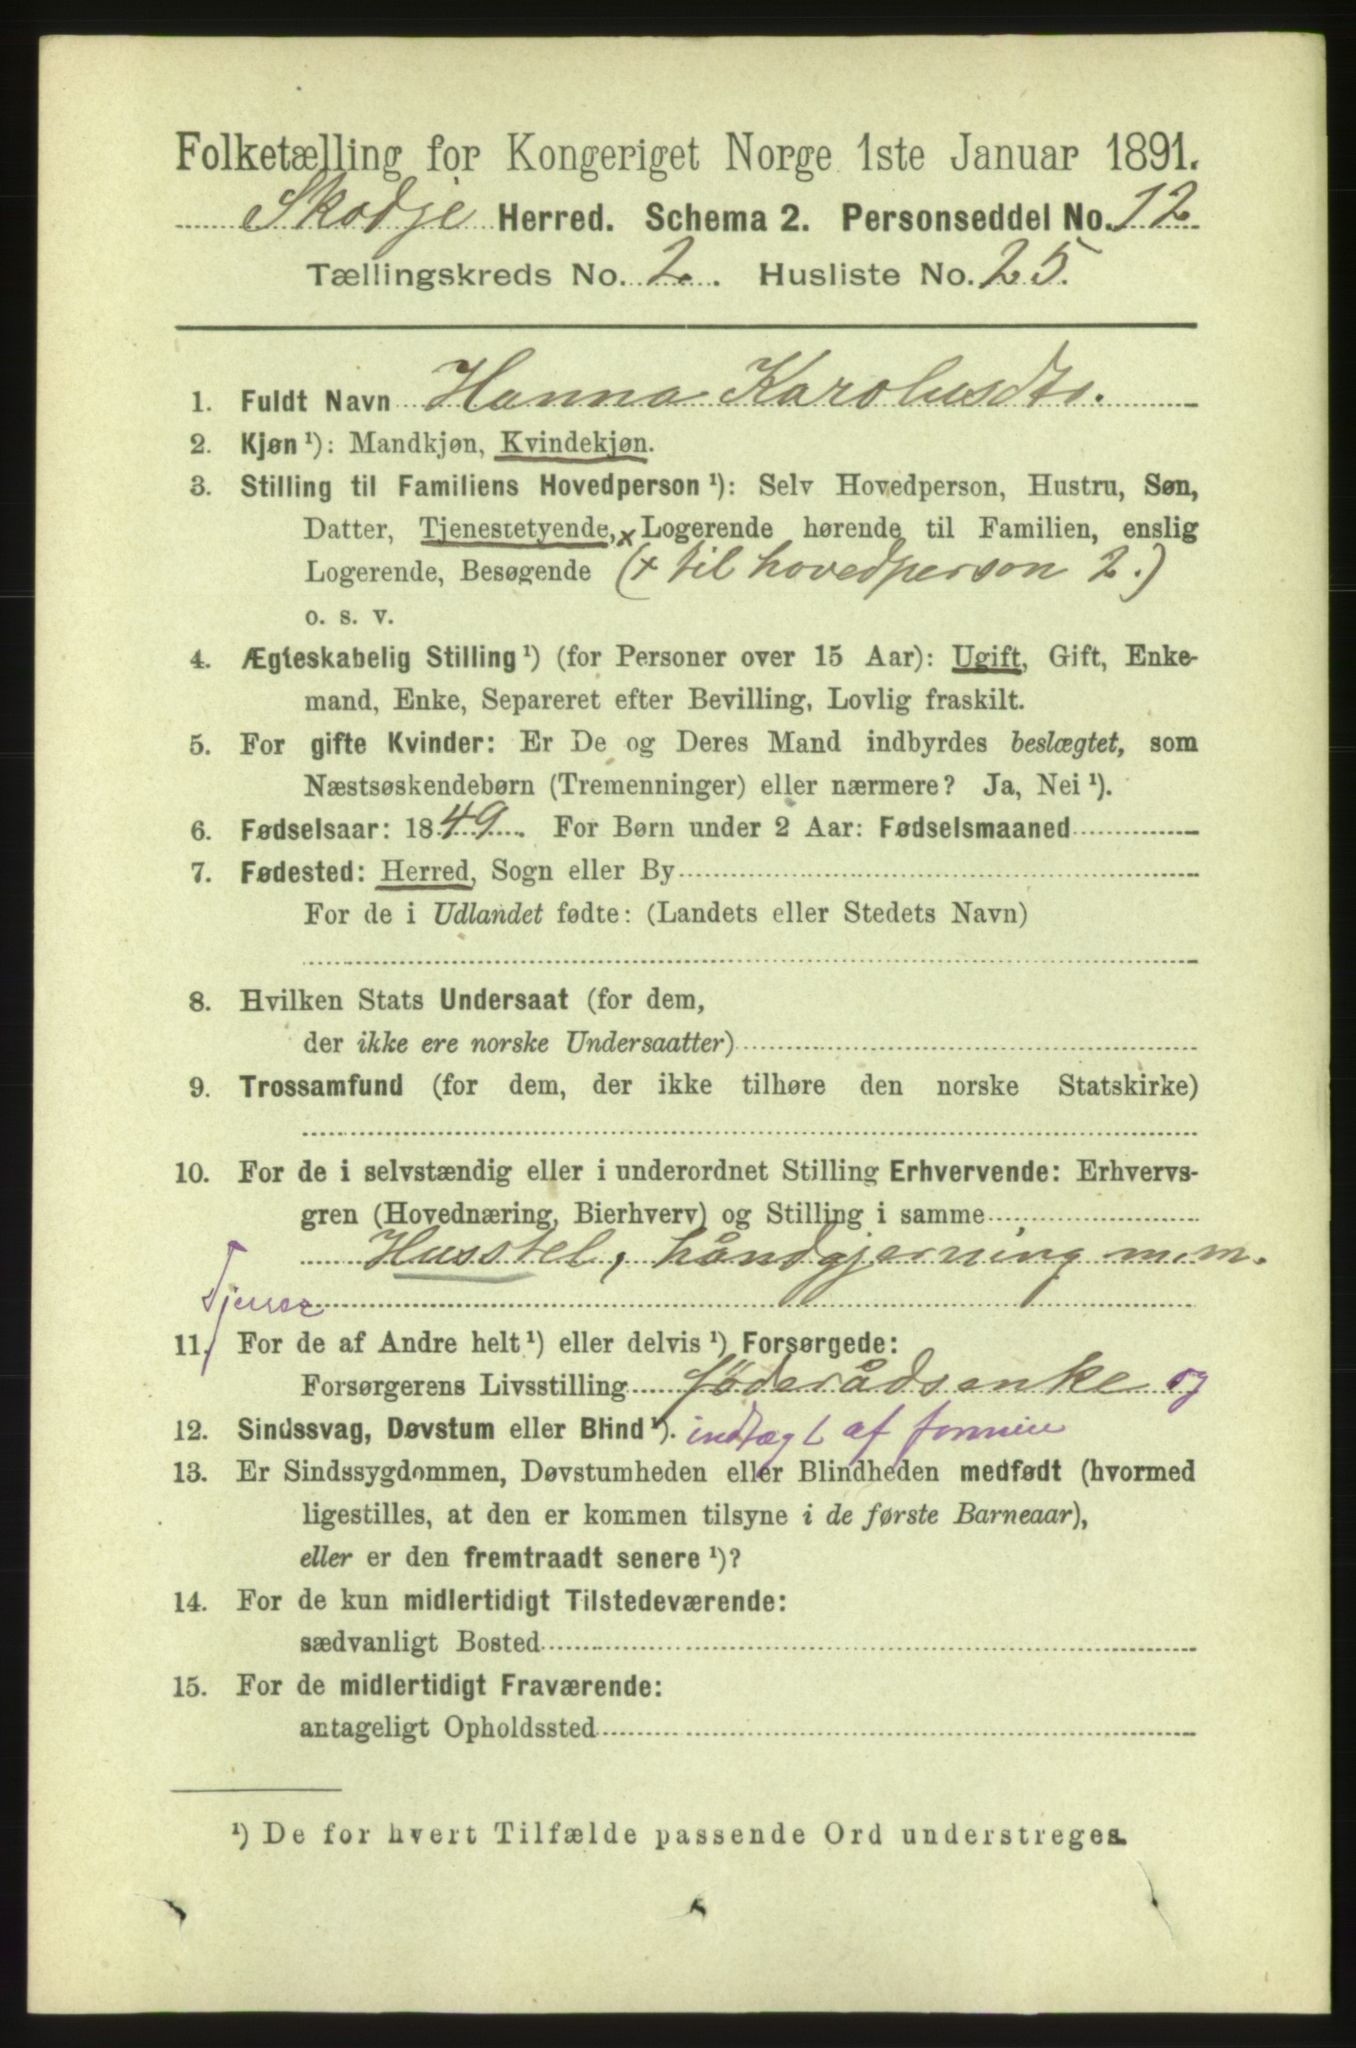 Folketælling for Kongeriget Norge 1ste Januar 1891.
Skodje Herred. Schema 2. Personseddel No. 12
Tællingskreds No. 2. Husliste No. 25.
1. Fuldt Navn Hanna Karolusdtr.
2. Kjøn ¹): Mandkjøn, Kvindekjøn.
3. Stilling til Familiens Hovedperson ¹): Selv Hovedperson, Hustru, Søn,
Datter, Tjenestetyende, x Logerende hørende til Familien, enslig
Logerende, Besøgende (x til hovedperson 2.)
o. s. v.
4. Ægteskabelig Stilling ¹) (for Personer over 15 Aar): Ugift, Gift, Enke-
mand, Enke, Separeret efter Bevilling, Lovlig fraskilt.
5. For gifte Kvinder: Er De og Deres Mand indbyrdes beslægtet, som
Næstsøskendebørn (Tremenninger) eller nærmere? Ja, Nei ¹).
6. Fødselsaar: 1849. For Børn under 2 Aar: Fødselsmaaned
7. Fødested: Herred, Sogn eller By
For de i Udlandet fødte: (Landets eller Stedets Navn)
8. Hvilken Stats Undersaat (for dem,
der ikke ere norske Undersaatter)
9. Trossamfund (for dem, der ikke tilhøre den norske Statskirke)
10. For de i selvstændig eller i underordnet Stilling Erhvervende: Erhvervs-
gren (Hovednæring, Bierhverv) og Stilling i samme
Husstel, håndgjerning m.m.
11. For de af Andre helt ¹) eller delvis ¹) Forsørgede:
Forsørgerens Livsstilling føderådsenke og
12. Sindssvag, Døvstum eller Blind ¹). indtægt af formue
13. Er Sindssygdommen, Døvstumheden eller Blindheden medfødt (hvormed
ligestilles, at den er kommen tilsyne i de første Barneaar),
eller er den fremtraadt senere ¹)?
14. For de kun midlertidigt Tilstedeværende:
sædvanligt Bosted
15. For de midlertidigt Fraværende:
antageligt Opholdssted
¹) De for hvert Tilfælde passende Ord understreges.